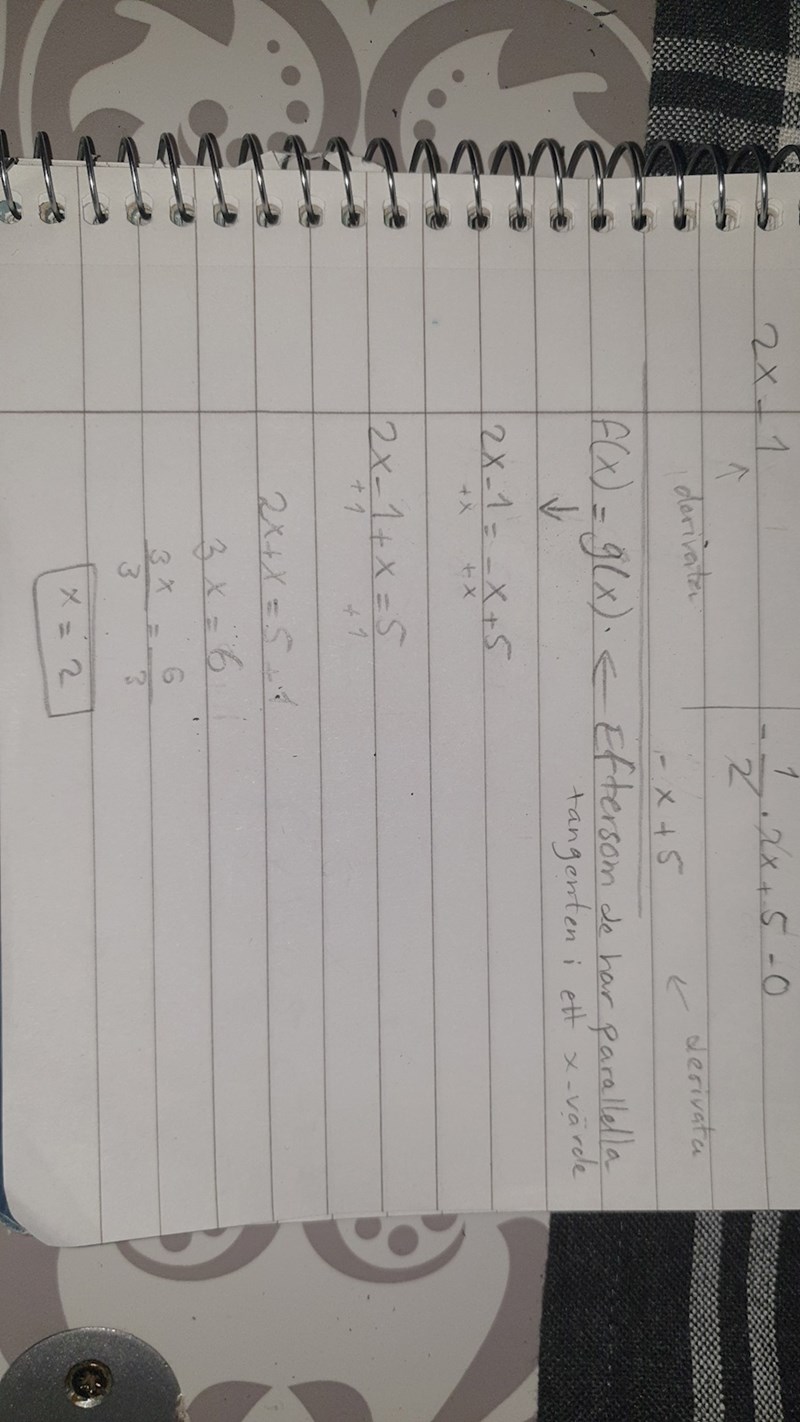 2x - 1
- 1/2 · 2x + 5 - 0
↑
derivatan
- x + 5
← derivatan
f(x) = g(x). ← Eftersom de har parallella
↓ tangenten i ett x-värde
2x - 1 = -x + 5
+x +x
2x - 1 + x = 5
+1 +1
2x + x = 5 + 1
3x = 6
3x/3 = 6/3
x = 2